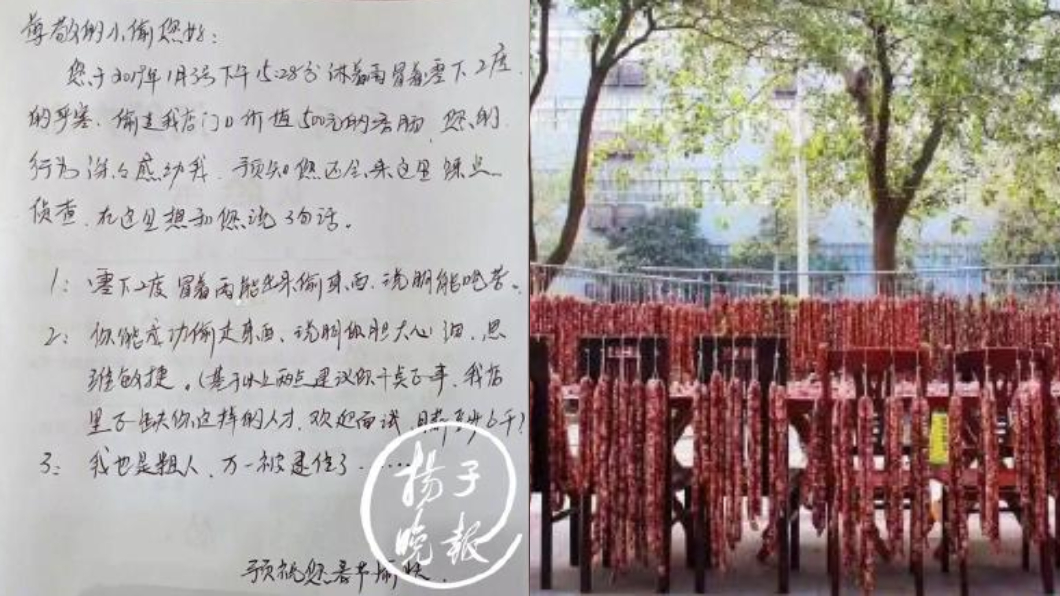 尊敬的小偷您好：
您于2019年1月3号下午15:28分沐着雨冒着零下2度
的严寒、偷走我店门口价值500元的香肠，您的
行为深々感动我，预知您还会来这里踩点
侦查，在这里想和您说3句话。
1：零下2度冒着雨能出来偷东西、说明能吃苦。
2：你能成功偷走东西、说明你胆大心细，思
维敏捷。(基于以上两点建议你干点正事，我店
里正缺你这样的人才，欢迎面试，月薪6千)
3：我也是粗人，万一被逮住了……
预祝您春节愉快
扬子
晚报